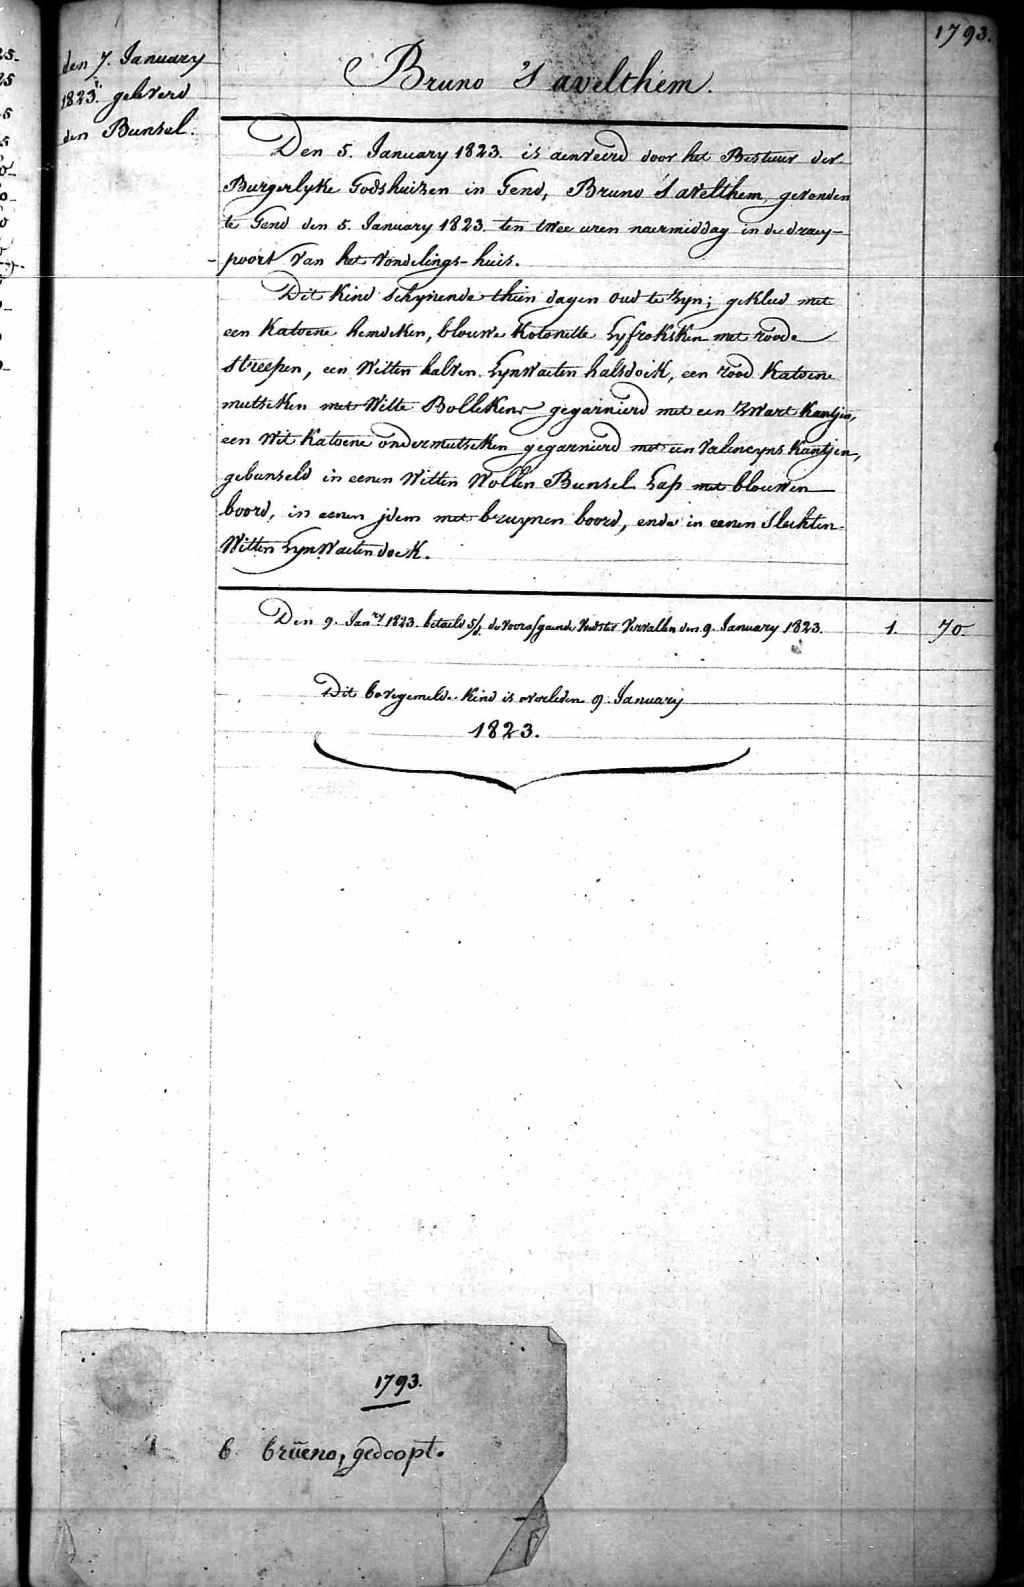 1793.
den 7. January
1823. geleverd
den Bunsel.
Bruno 'Savelthem.
Den 5. January 1823. is aenveird door het Bestuur der
Burgerlyke Godshuizen in Gend, Bruno 'Savelthem, gevonden
te Gend den 5. January 1823. ten twee uren naermiddag in de draey-
poort van het vondelings-huis.
Dit Kind schynende thien dagen oud te zyn; gekleed met
een Katoene hemdeken, blouwe Kotonette Lyfrokske met roode
streepen, een Witten halven Lynwaeten halsdoik, een rood Katoene
mutseken met Witte Bollekens gegarnierd met een Zwart Kantjen,
een Wit Katoene ondermutseken gegarnierd met een Valencyns Kantjen,
gebunseld in eenen Witten Wollen Bunsel Lap met blouwen
boord, in eenen jdem met bruynen boord, ende in eenen slechten
Witten Lynwaeten doek.
Den 9. Janry 1823. betaeld de voorafgaende Vervallen den 9. January 1823. 1. 70
Dit bovegemelde Kind is overleden 9. January
1823.
1793.
b brüeno, gedoopt.